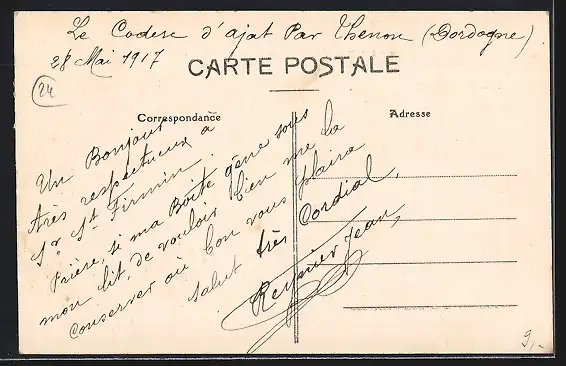 Le Coderc d'ajat Par Thenon (Dordogne)
28 Mai 1917
CARTE POSTALE
24
Correspondance
Adresse
Un Bonjour
très respectueux à
Sr St. Firmin.
Prière, si ma Boîte gêne sous
mon lit, de vouloir bien me la
Conserver où bon vous plaira
Salut très Cordial,
Reynier Jean,
9,-